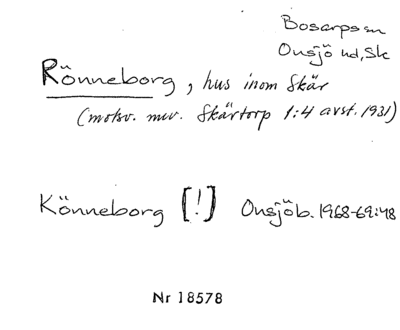 Bosarps sn
Onsjö hd, Sk
Rönneborg, hus inom Skär
(motsv. mev. Skärtorp 1:4 avst. 1931)
Könneborg [!] Onsjöb. 1968-69:48
Nr 18578